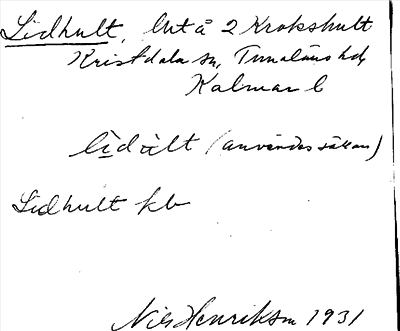 Lidhult, lht å 2 Krokshult
Kristdala sn, Tunaläns hd,
Kalmar l
lìdùlt (användes sällan)
Lidhult kb
Nils Henriksson 1931